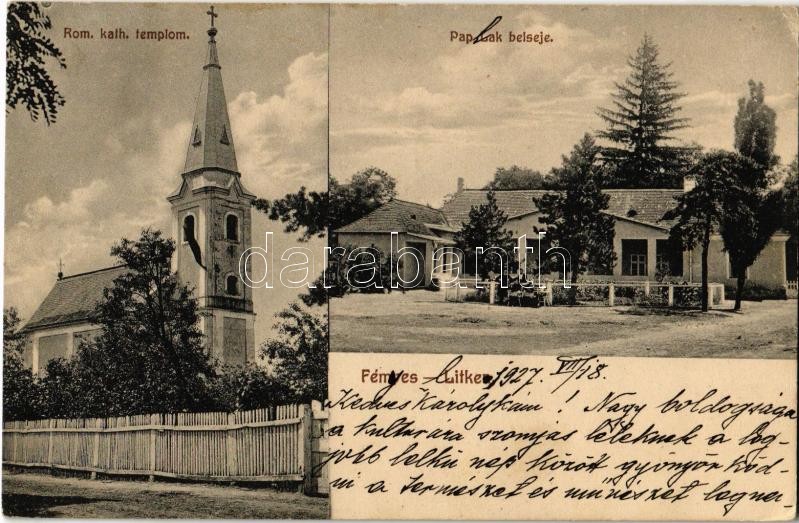 Rom. kath. templom.
Pap Lak belseje.
darabanth
Fényes — Litke. 1927. VII/18.
Kedves Károlykám! Nagy boldogsága
a kulturára szomjas léleknek a leg-
jobb lelkü nép között gyönyörköd-
ni a természet és müvészet legner-